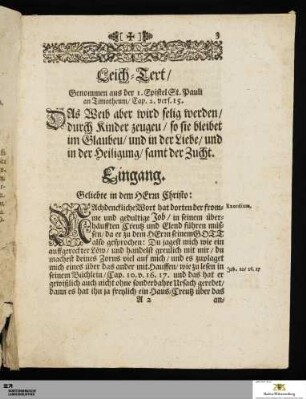 3
Leich-Text/
Genommen aus der 1. Epistel St. Pauli
an Timotheum/ Cap. 2. vers. 15.
DAs Weib aber wird selig werden/
durch Kinder zeugen/ so sie bleibet
im Glauben/ und in der Liebe/ und
in der Heiligung/ samt der Zucht.
Eingang.
Geliebte in dem HErrn Christo:
NAchdenckliche Wort hat dorten der from-
me und gedultige Job/ in seinem über-
häufften Creutz und Elend führen müs-
sen/ da er zu dem HErrn seinem GOTT
also gesprochen: Du jagest mich wie ein
auffgereckter Löw/ und handelst greulich mit mir/ du
machest deines Zorns viel auf mich/ und es zuplaget
mich eines über das ander mit Hauffen/ wie zu lesen in
seinem Büchlein/ Cap. 10. v. 16. 17. und das hat er
gewißlich auch nicht ohne sonderbahre Ursach geredet/
dann es hat ihn ja freylich ein Haus-Creutz über das
A 2 an/
Exordium.
Job. 10/ 16. 17
Baden-Württemberg